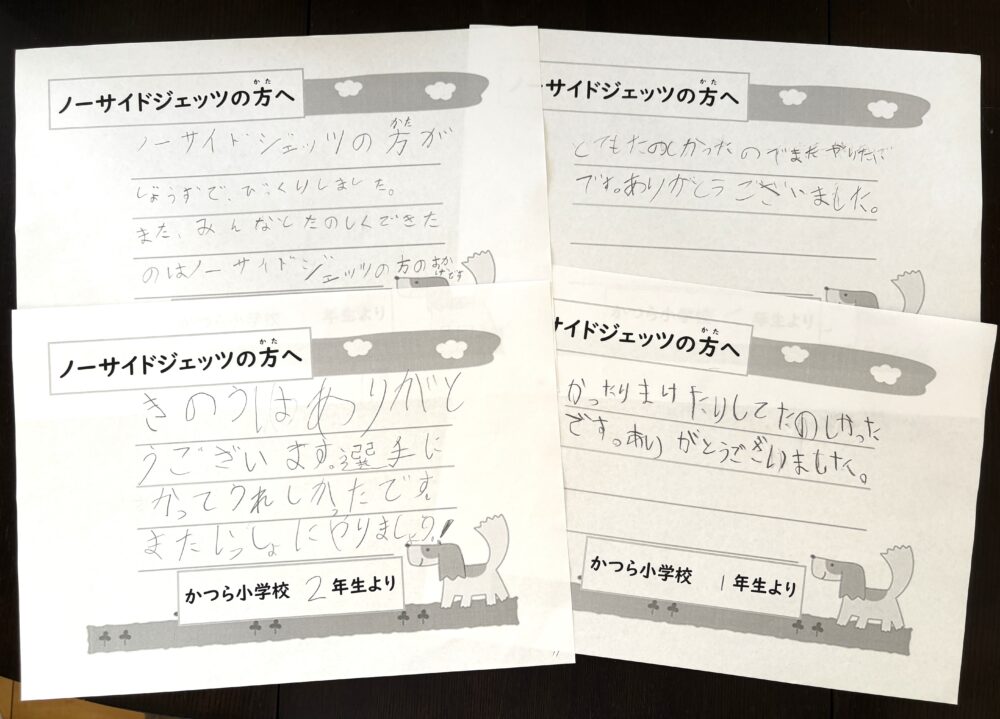 ノーサイドジェッツの方へ
かた
ノーサイドジェッツの方が
かた
じょうずで、びっくりしました。
また、みんなとたのしくできた
のはノーサイドジェッツの方のおか
げです
ーサイドジェッツの方へ
かた
とてもたのしかったのでまたやりたいで
です。ありがとうございました。
ノーサイドジェッツの方へ
かた
きのうはありがと
うございます。選手に
かってうれしかったです。
またいっしょにやりましょう!
かつら小学校 2年生より
サイドジェッツの方へ
かた
かったりまけたりしてたのしかった
です。ありがとうございました。
かつら小学校 1年生より